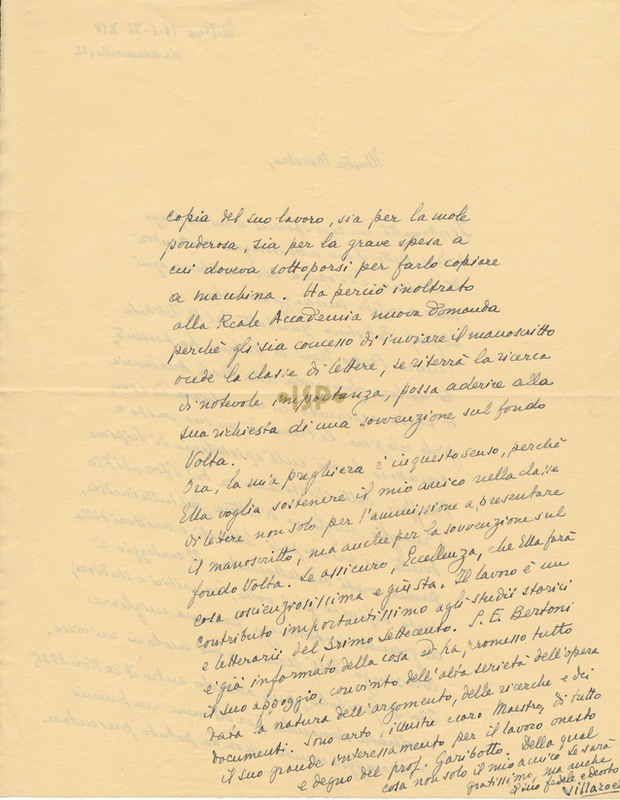 copia del suo lavoro, sia per la mole
ponderosa, sia per la grave spesa a
cui doveva sottoporsi per farlo copiare
a macchina. Ha perciò inoltrato
alla Reale Accademia nuova domanda
perchè gli sia concesso di inviare il manoscritto
onde la classe di lettere, se riterrà la ricerca
di notevole importanza, possa aderire alla
sua richiesta di una sovvenzione sul fondo
Volta.
Ora, la mia preghiera è in questo senso, perchè
Ella voglia sostenere il mio amico nella classe
di lettere non solo per l'ammissione a presentare
il manoscritto, ma anche per la sovvenzione sul
fondo Volta. Le assicuro, Eccellenza, che Ella farà
cosa coscienziosissima e giusta. Il lavoro è un
contributo importantissimo agli studii storici
e letterarii del primo Settecento. S. E. Bertoni
è già informato della cosa ed ha promesso tutto
il suo appoggio, convinto dell'alta serietà dell'opera
data la natura dell'argomento, delle ricerche e dei
documenti. Sono certo, illustre e caro Maestro, di tutto
il suo grande interessamento per il lavoro onesto
e degno del prof. Garibotto. Della qual
cosa non solo il mio amico Le sarà
gratissimo, ma anche
il suo fedele e devoto
Villaroel
ISP